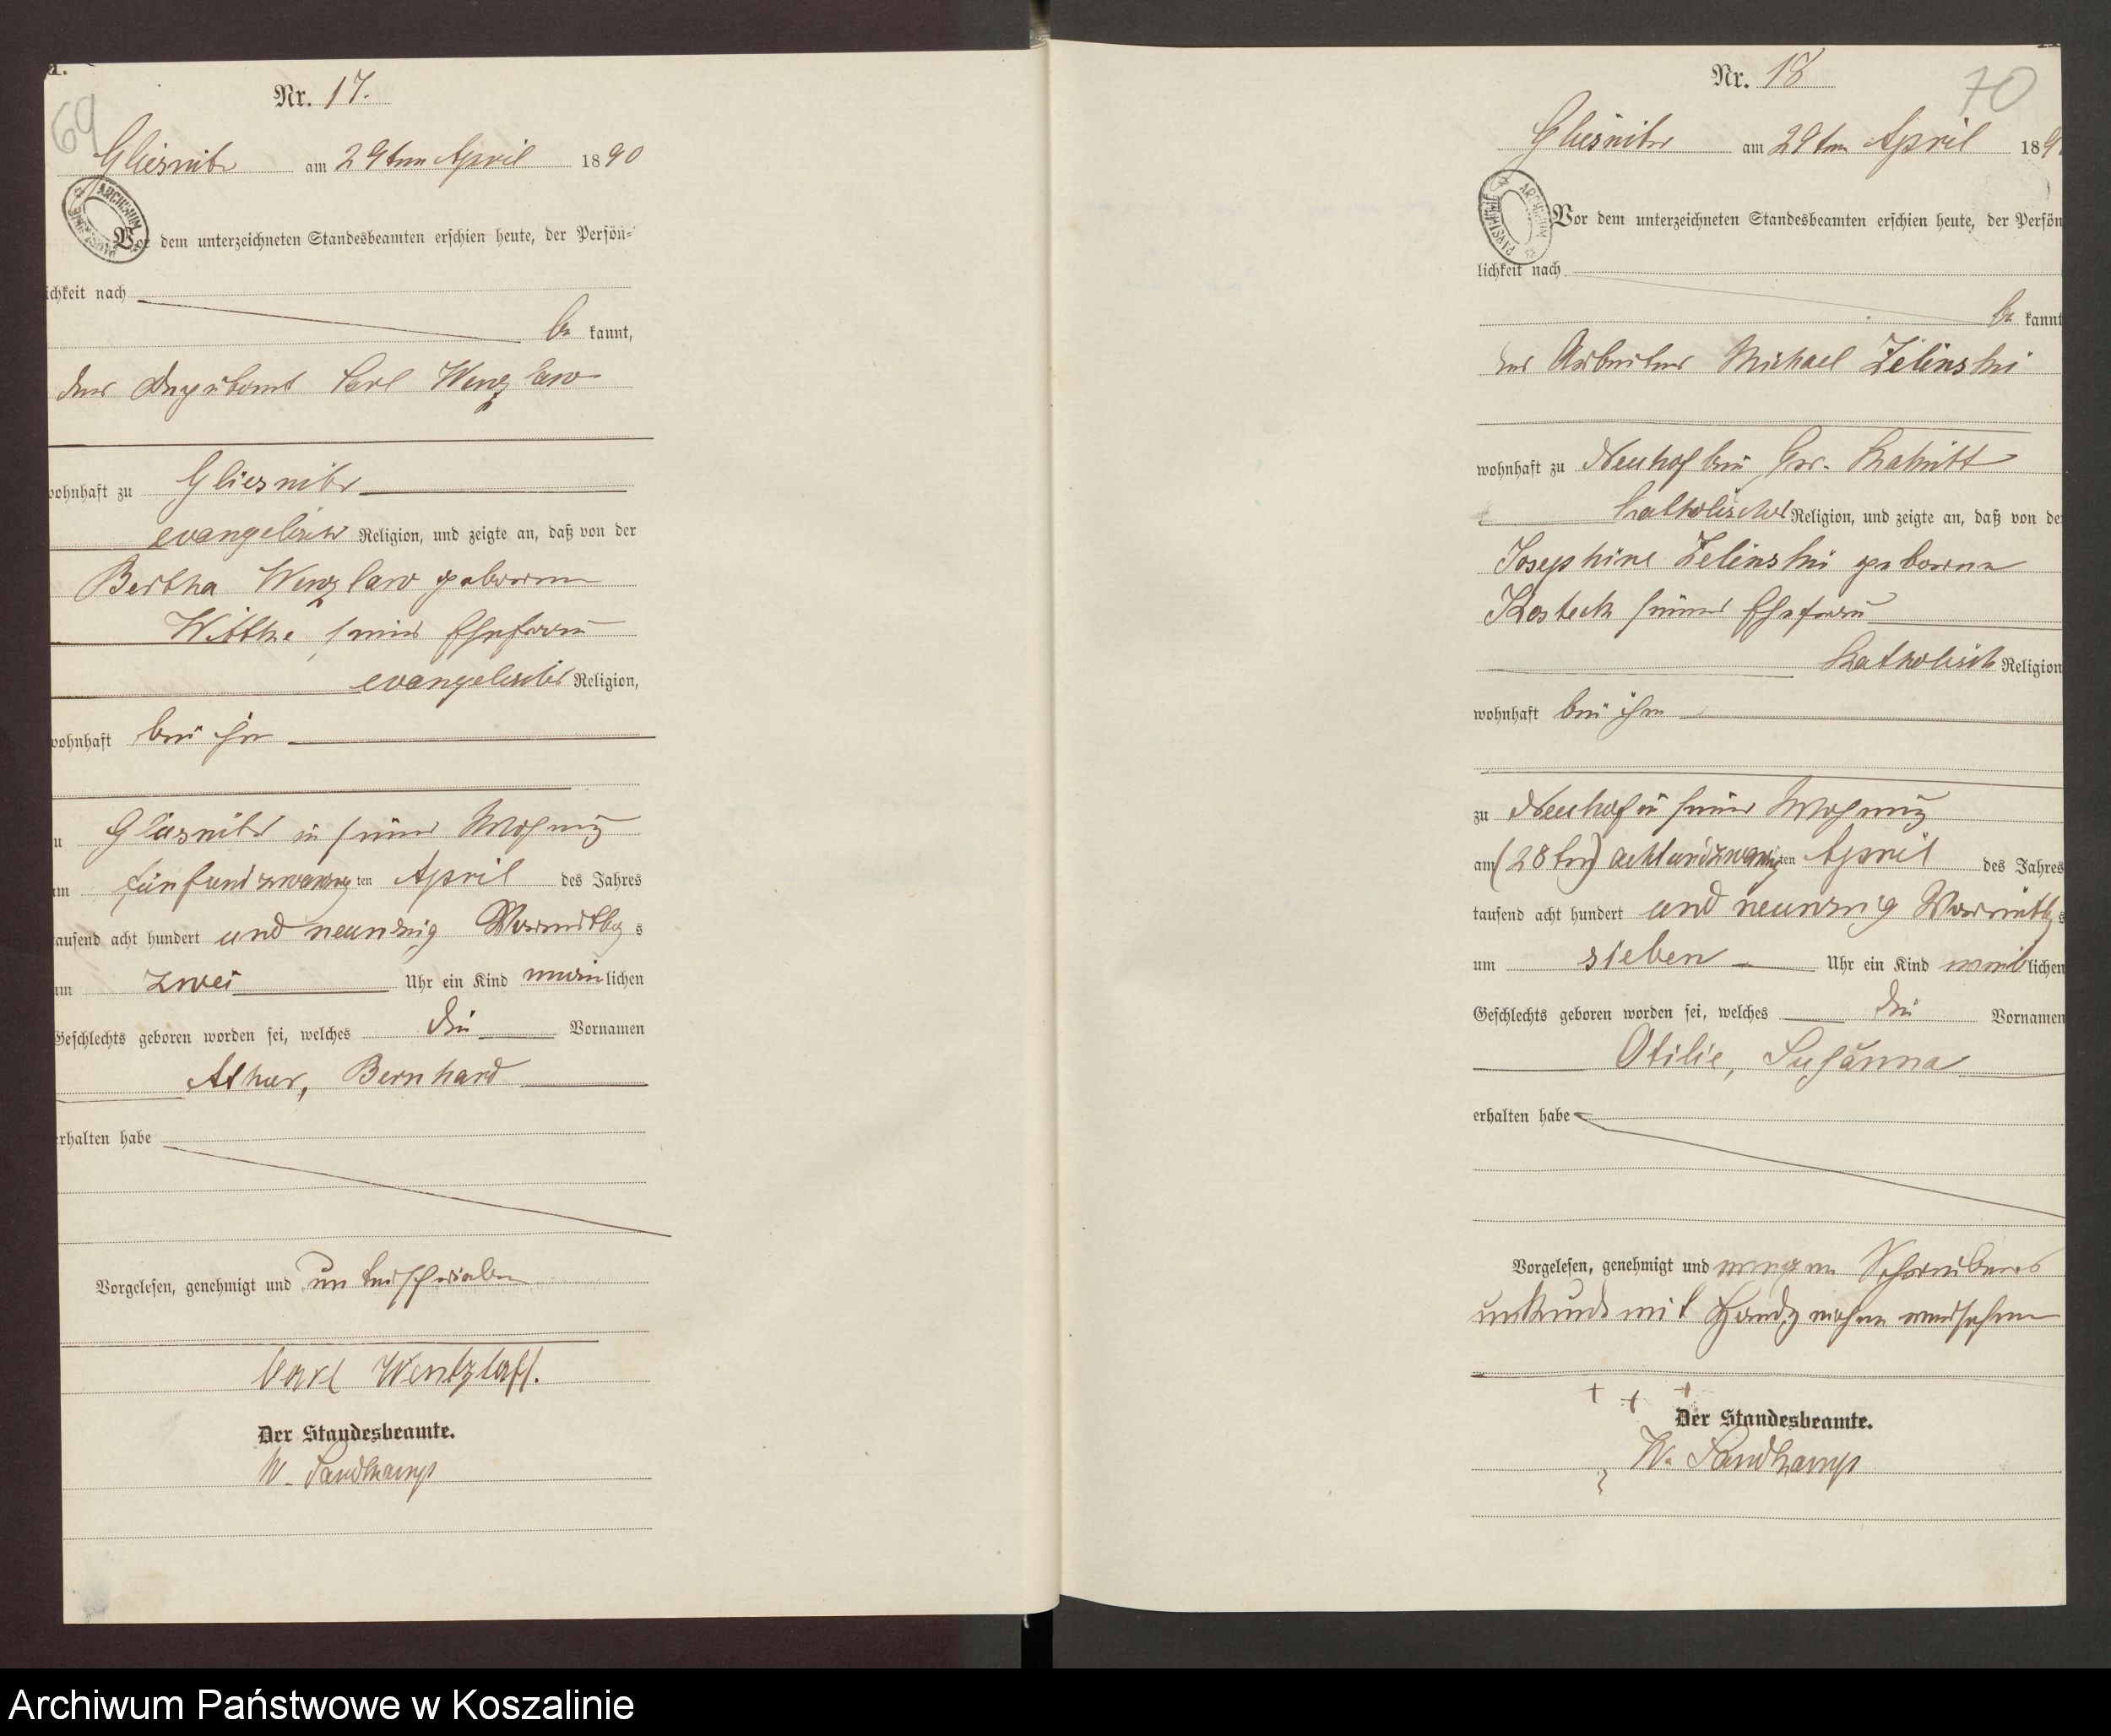 Nr. 17.
69
Gliesnitz am 29ten April 1890
ARCHIWUM
Vor dem unterzeichneten Standesbeamten erschien heute, der Persön-
lichkeit nach
be kannt,
der Deputant Carl Wenzlaw
wohnhaft zu Gliesnitz
evangelischer Religion, und zeigte an, daß von der
Bertha Wenzlaw geborene
Witthe seiner Ehefrau
evangelischer Religion,
wohnhaft bei ihm
zu Gliesnitz in seiner Wohnung
am fünfundzwanzig ten April des Jahres
tausend acht hundert und neunzig Vormittag s
um zwei Uhr ein Kind männlichen
Geschlechts geboren worden sei, welches die Vornamen
Athur, Bernhard
erhalten habe
Vorgelesen, genehmigt und unterschrieben
Carl Wentzlaff.
Der Standesbeamte.
W. Sandkamp
Nr. 18
70
Gliesnitz am 29ten April 189
ARCHIWUM PAŃSTWOWE
Vor dem unterzeichneten Standesbeamten erschien heute, der Persön
lichkeit nach
be kannt
der Arbeiter Michael Zelinski
wohnhaft zu Neuhof bei Gr.
katholischer Religion, und zeigte an, daß von de
Josephine Zelinski geborene
Kosteck seiner Ehefrau
katholisch Religion
wohnhaft bei ihm
zu Neuhof in seiner Wohnung
am (28ten) achtundzwanzig ten April des Jahres
tausend acht hundert und neunzig Vormittag s
um sieben Uhr ein Kind weiblichen
Geschlechts geboren worden sei, welches die Vornamen
Otilie, Susanna
erhalten habe
Vorgelesen, genehmigt und wegen Schreibens
unkunde mit Handzeichen versehen
+ + +
Der Standesbeamte.
W. Sandkamp
Archiwum Państwowe w Koszalinie